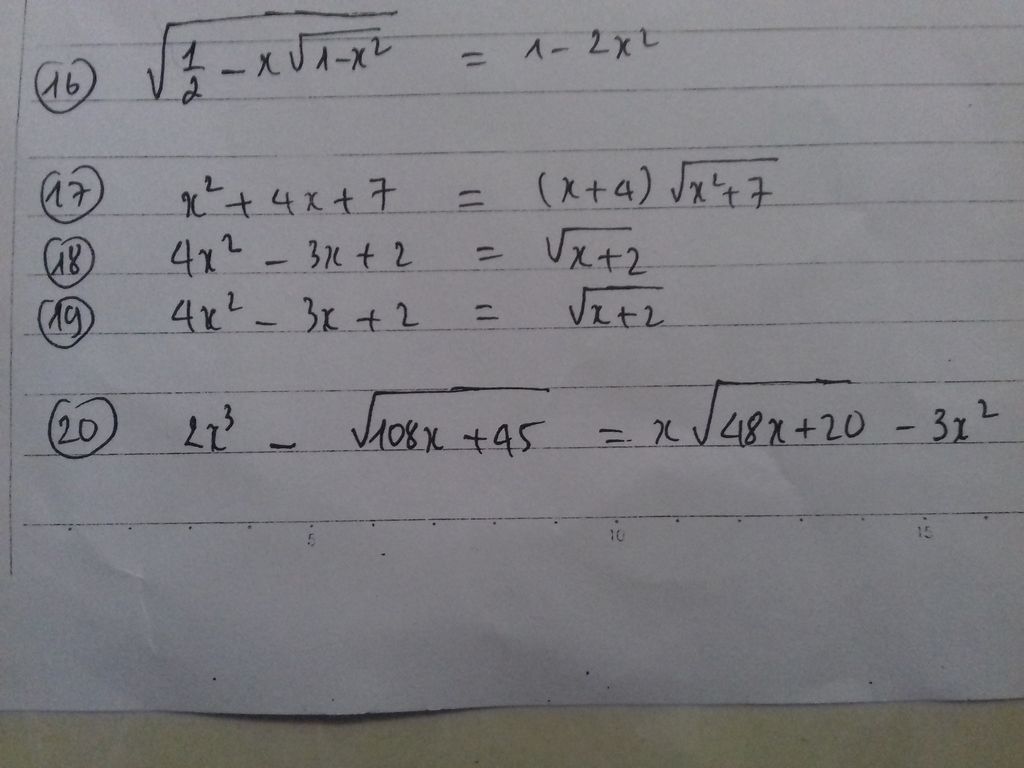 (16) √(1/2 - x√(1-x²)) = 1 - 2x²
(17) x² + 4x + 7 = (x+4) √(x²+7)
(18) 4x² - 3x + 2 = √(x+2)
(19) 4x² - 3x + 2 = √(x+2)
(20) 2x³ - √(108x + 45) = x √(48x+20) - 3x²
5 10 15